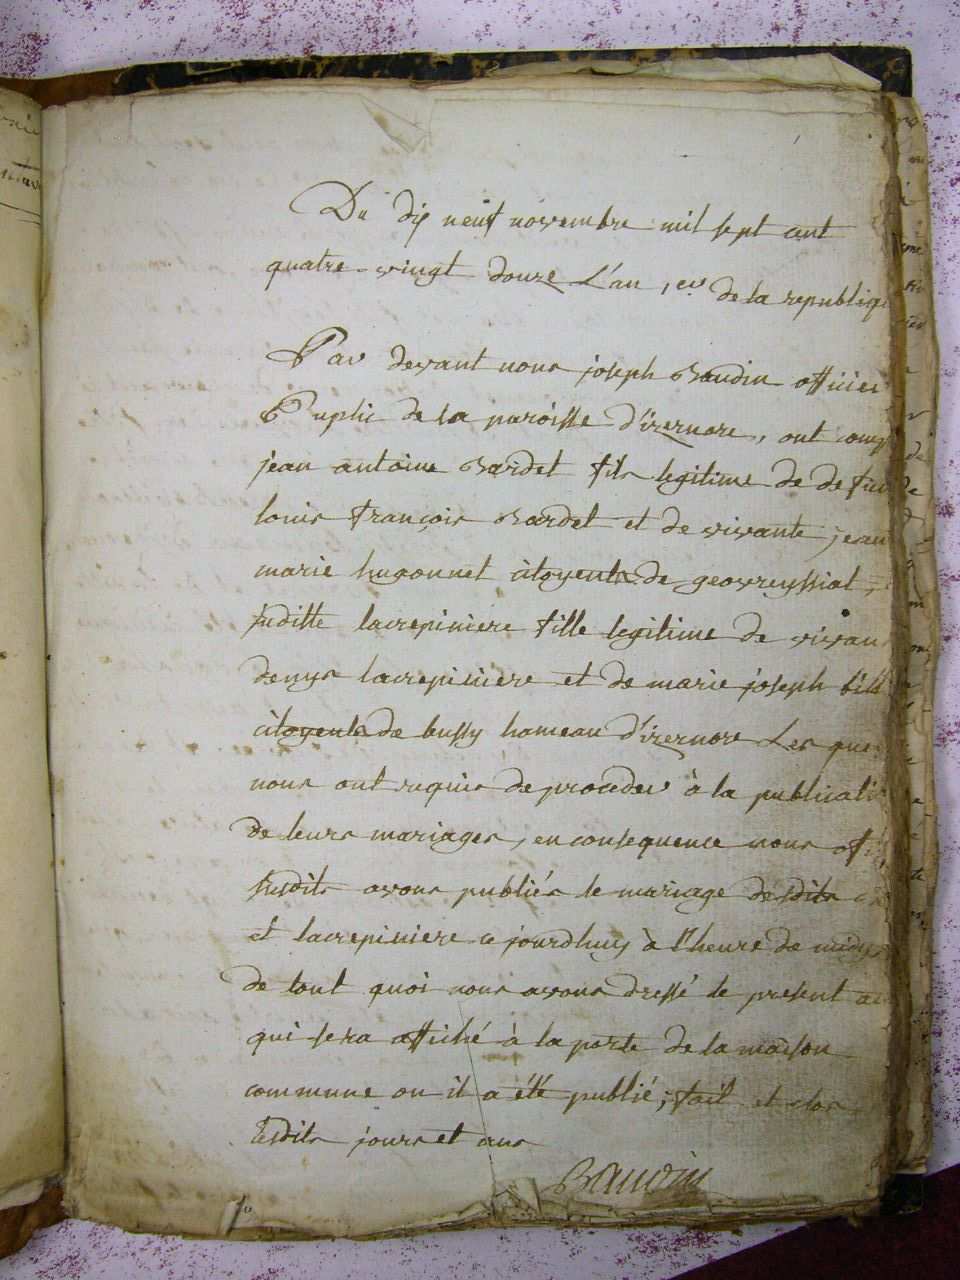 Du dix neuf novembre mil sept cent
quatre-vingt douze L'an 1er de la republiq
Par devant nous joseph Baudin officier
Puplic de la paroisse d'izernore, ont comp
jean antoine Bardet fils legitime de defu
louis françois Bardet et de vivante jean
marie hugonnet citoyents de geovreyssiat,
juditte lacrepiniere fille legitime de vivan
denys lacrepiniere et de marie joseph
citoyents de bussy hameau d'izernore Les que
nous ont requis de proceder à la publicati
de leurs mariages, en consequence nous offi
susdits avons publiés le mariage desdits
et lacrepiniere ce jourdhuy à l'heure de midy
de tout quoi nous avons dressé le present a
qui sera affiché à la porte de la maison
commune ou il a été publié; fait et clos
lesdits jours et ans
Baudin